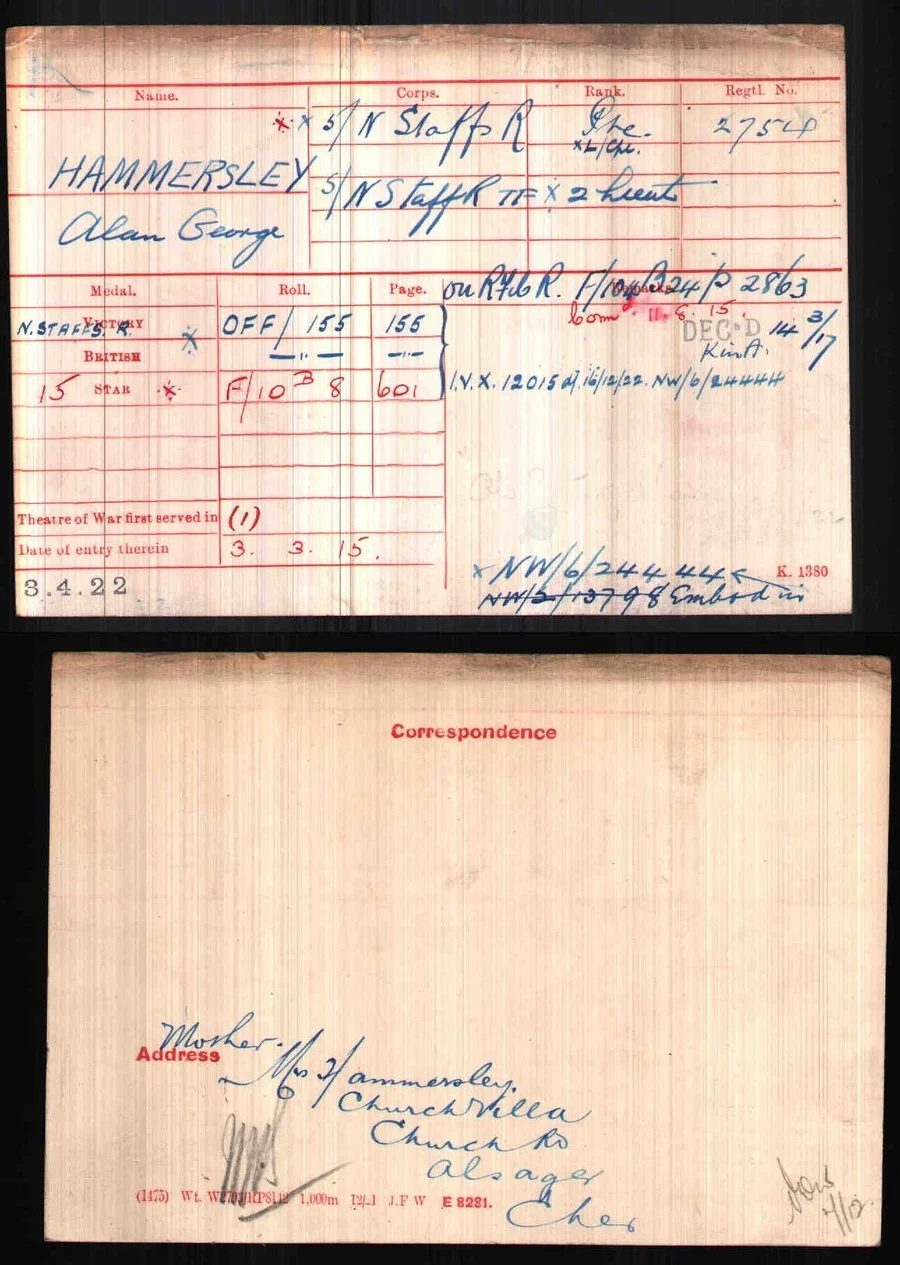 Name. Corps. Rank. Regtl. No.
HAMMERSLEY
Alan George
* x 5/ N Staffs R Pte. 2754
x L/Cpl.
5/ N Staff R TF x 2 Lieut
Medal. Roll. Page. Remarks.
VICTORY
N. STAFFS. R.
OFF/ 155 155
BRITISH — " — — " —
15 STAR * F/10 B 8 601
on R F/104 B24 P 2863
com 11. 8. 15.
DEC'D 14 3/17
K in A.
I.V.X. 12015 d/ 16/12/22. NW/6/24444
Theatre of War first served in (1)
Date of entry therein 3. 3. 15.
3.4.22
x NW/6/24444
K. 1380
NW/2/13798 Embod in
Correspondence
Mother.
Address
Mrs Hammersley.
Church Villa
Church Rd
Alsager
Ches
(1475) Wt. 1,000m 12/21 J.F W E 8281.